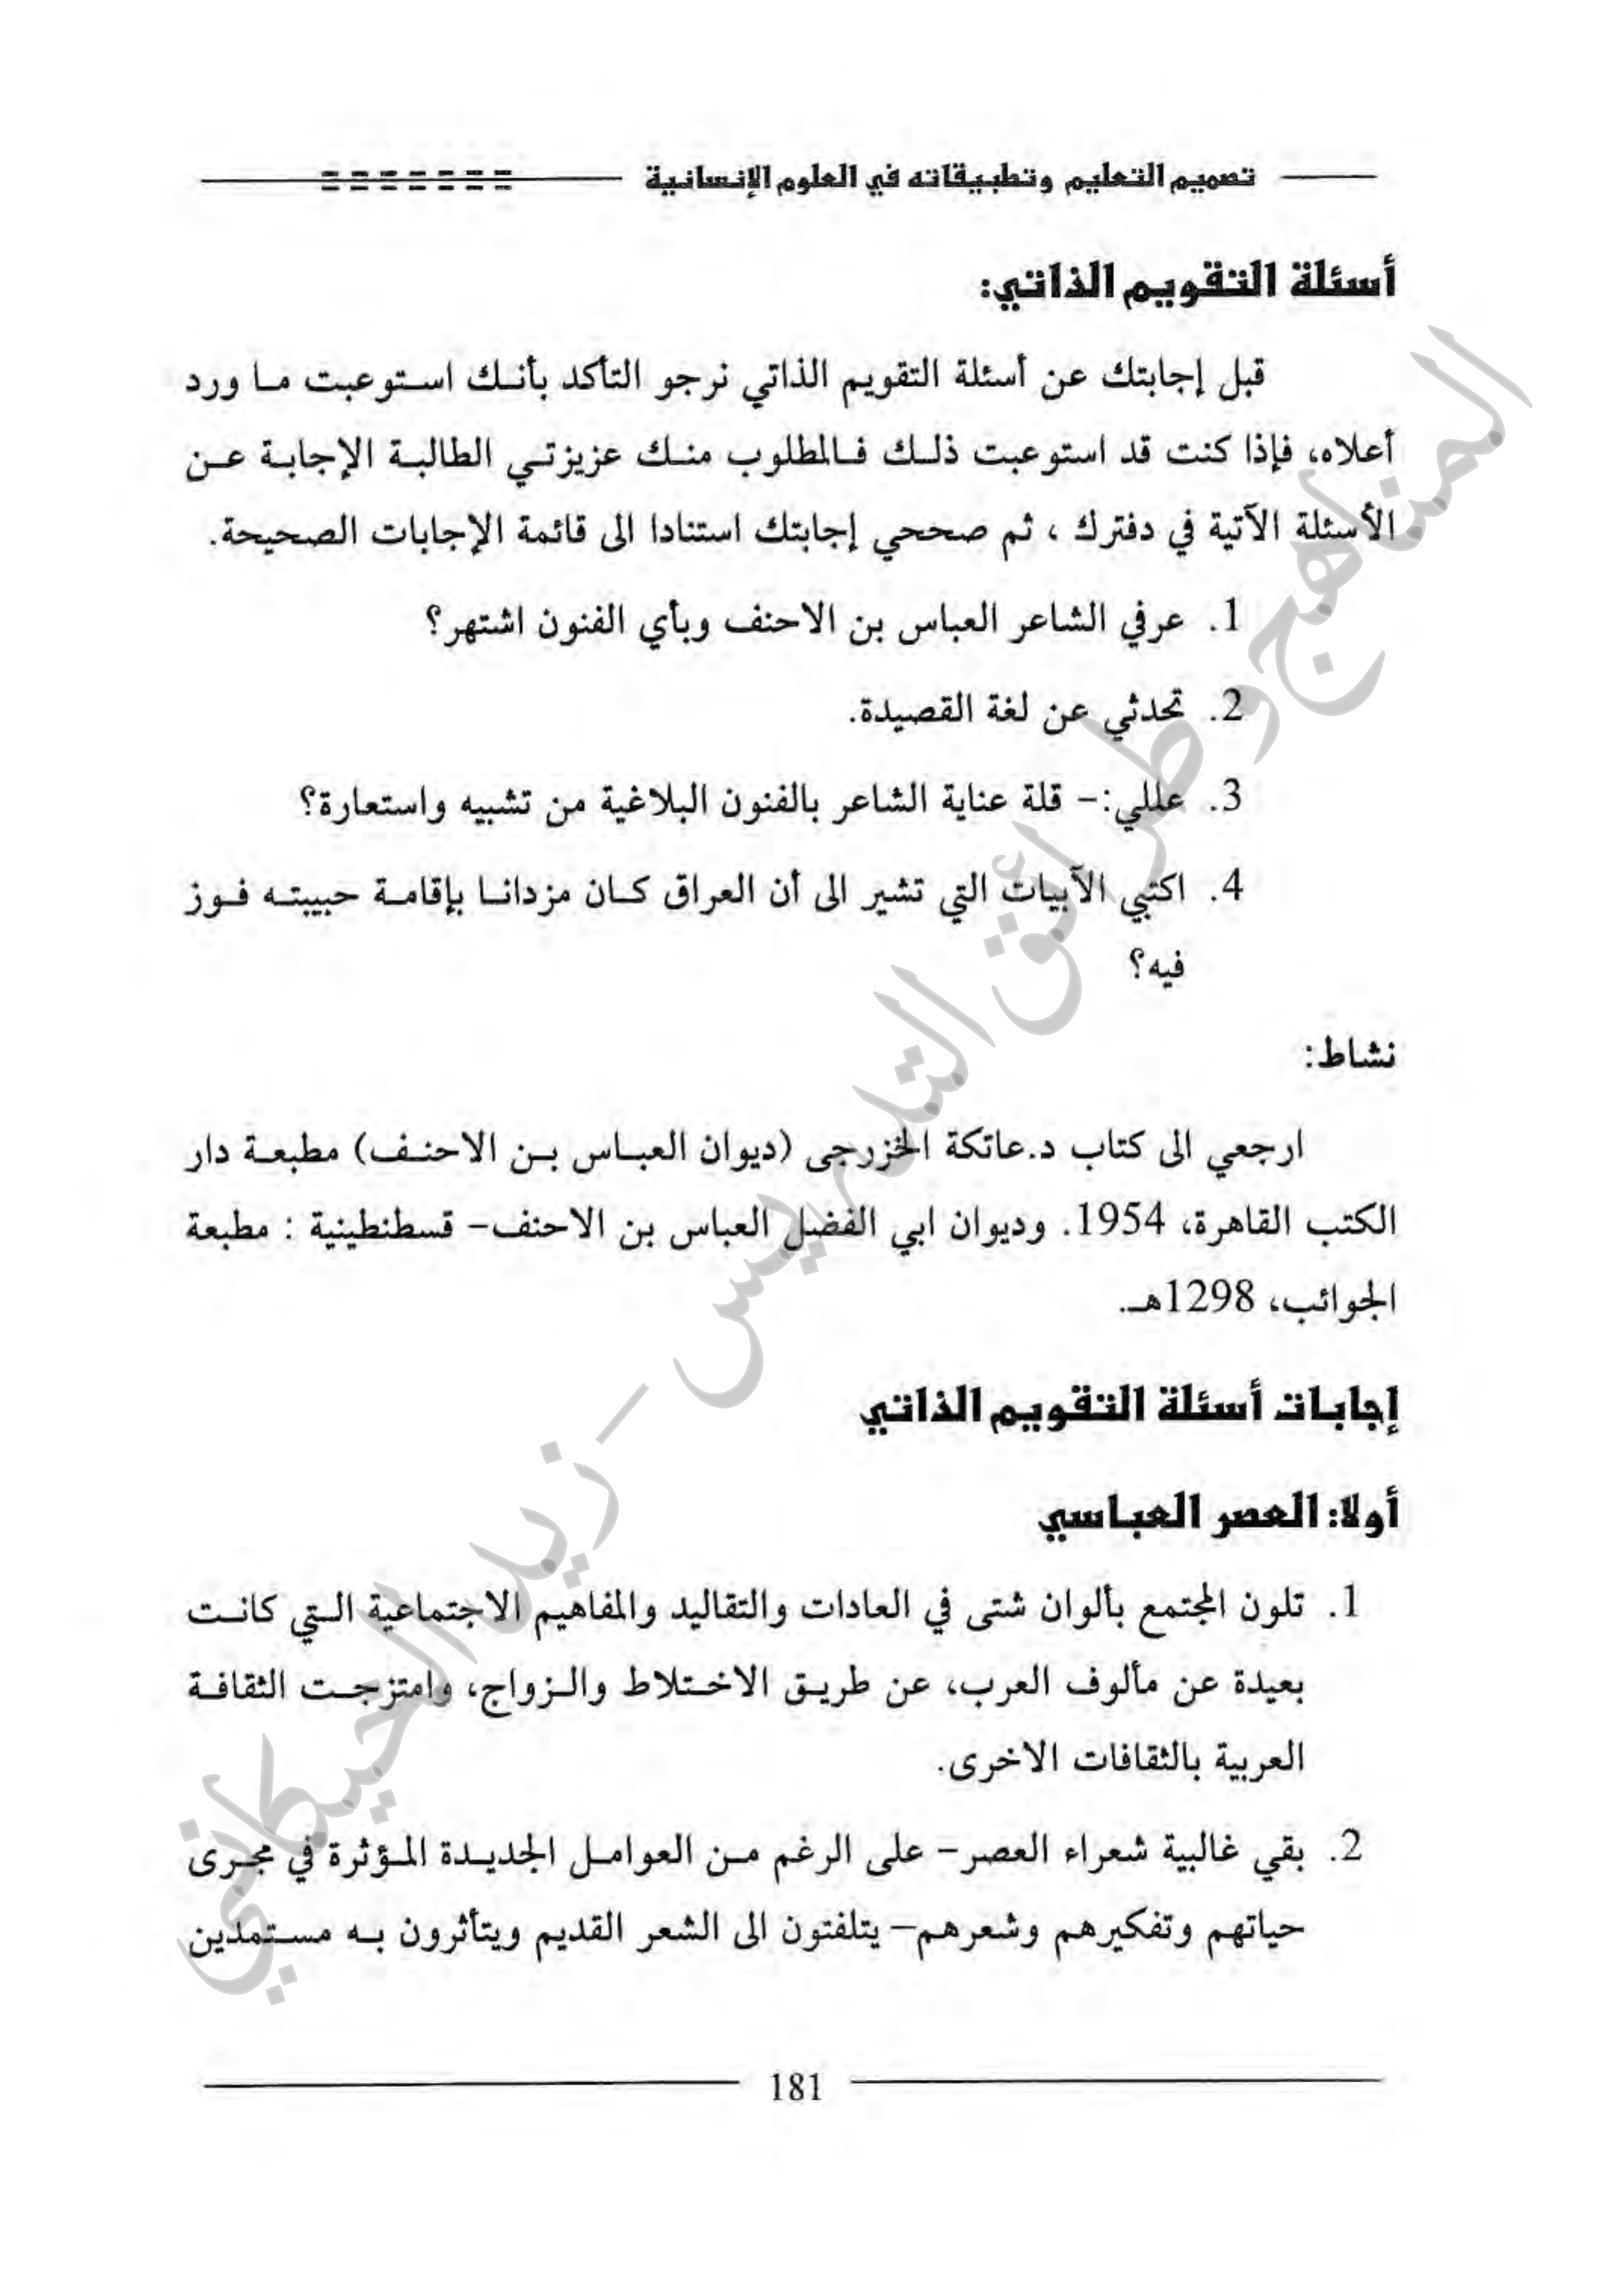 تصميم التعليم وتطبيقاته في العلوم الإنسانية
أسئلة التقويم الذاتي:
قبل إجابتك عن أسئلة التقويم الذاتي نرجو التأكد بأنك استوعبت ما ورد
أعلاه، فإذا كنت قد استوعبت ذلك فالمطلوب منك عزيزتي الطالبة الإجابة عن
الأسئلة الآتية في دفترك ، ثم صححي إجابتك استنادا الى قائمة الإجابات الصحيحة.
1. عرفي الشاعر العباس بن الاحنف وبأي الفنون اشتهر؟
2. تحدثي عن لغة القصيدة.
3. عللي:- قلة عناية الشاعر بالفنون البلاغية من تشبيه واستعارة؟
4. اكتبي الأبيات التي تشير الى أن العراق كان مزدانا بإقامة حبيبته فوز
فيه؟
نشاط:
ارجعي الى كتاب د.عاتكة الخزرجى (ديوان العباس بن الاحنف) مطبعة دار
الكتب القاهرة، 1954. وديوان ابي الفضل العباس بن الاحنف- قسطنطينية : مطبعة
الجوائب، 1298هـ.
إجابات أسئلة التقويم الذاتي
أولا: العصر العباسي
1. تلون المجتمع بألوان شتى في العادات والتقاليد والمفاهيم الاجتماعية التي كانت
بعيدة عن مألوف العرب، عن طريق الاختلاط والزواج، وامتزجت الثقافة
العربية بالثقافات الاخرى.
2. بقي غالبية شعراء العصر- على الرغم من العوامل الجديدة المؤثرة في مجرى
حياتهم وتفكيرهم وشعرهم- يتلفتون الى الشعر القديم ويتأثرون به مستمدين
181
المناهج وطرائق التدريس - زيد الخيكاني